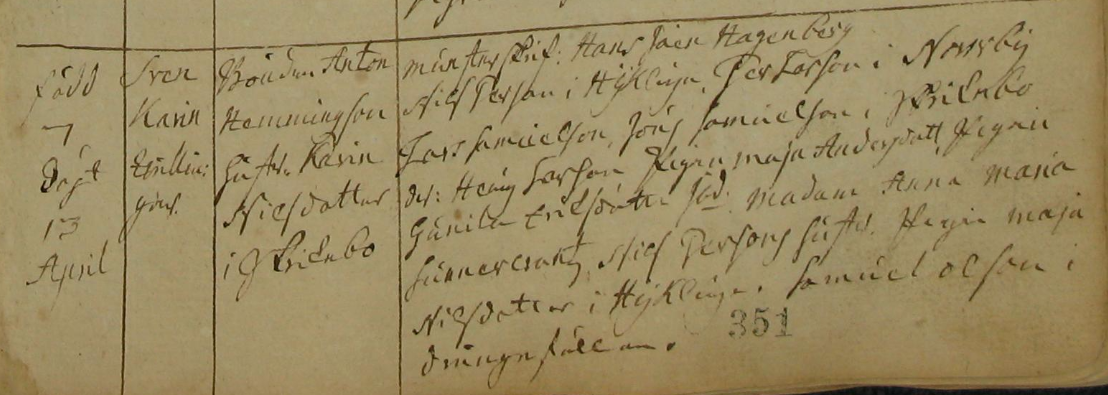 född
7
döpt
13
April
Sven
Karin
tvillin:
gar.
Bonden Anton
Hemmingson
hustr. Karin
Nilsdotter
i Skrikebo
Mönsterskrif: Hans Joen Hagenberg
Nils Person i Hycklinge, Per Larson i Norrby
Lars Samuelson, Jöns Samuelson i Skrikebo
dr: Heming Larson Pigan Maja Andersdott, Pigan
Gunila Ericsdotter Madam Anna Maria
Nils Persons hustr. Pigan Maja
Nilsdotter i Hycklinge. Samuel Olson i
351